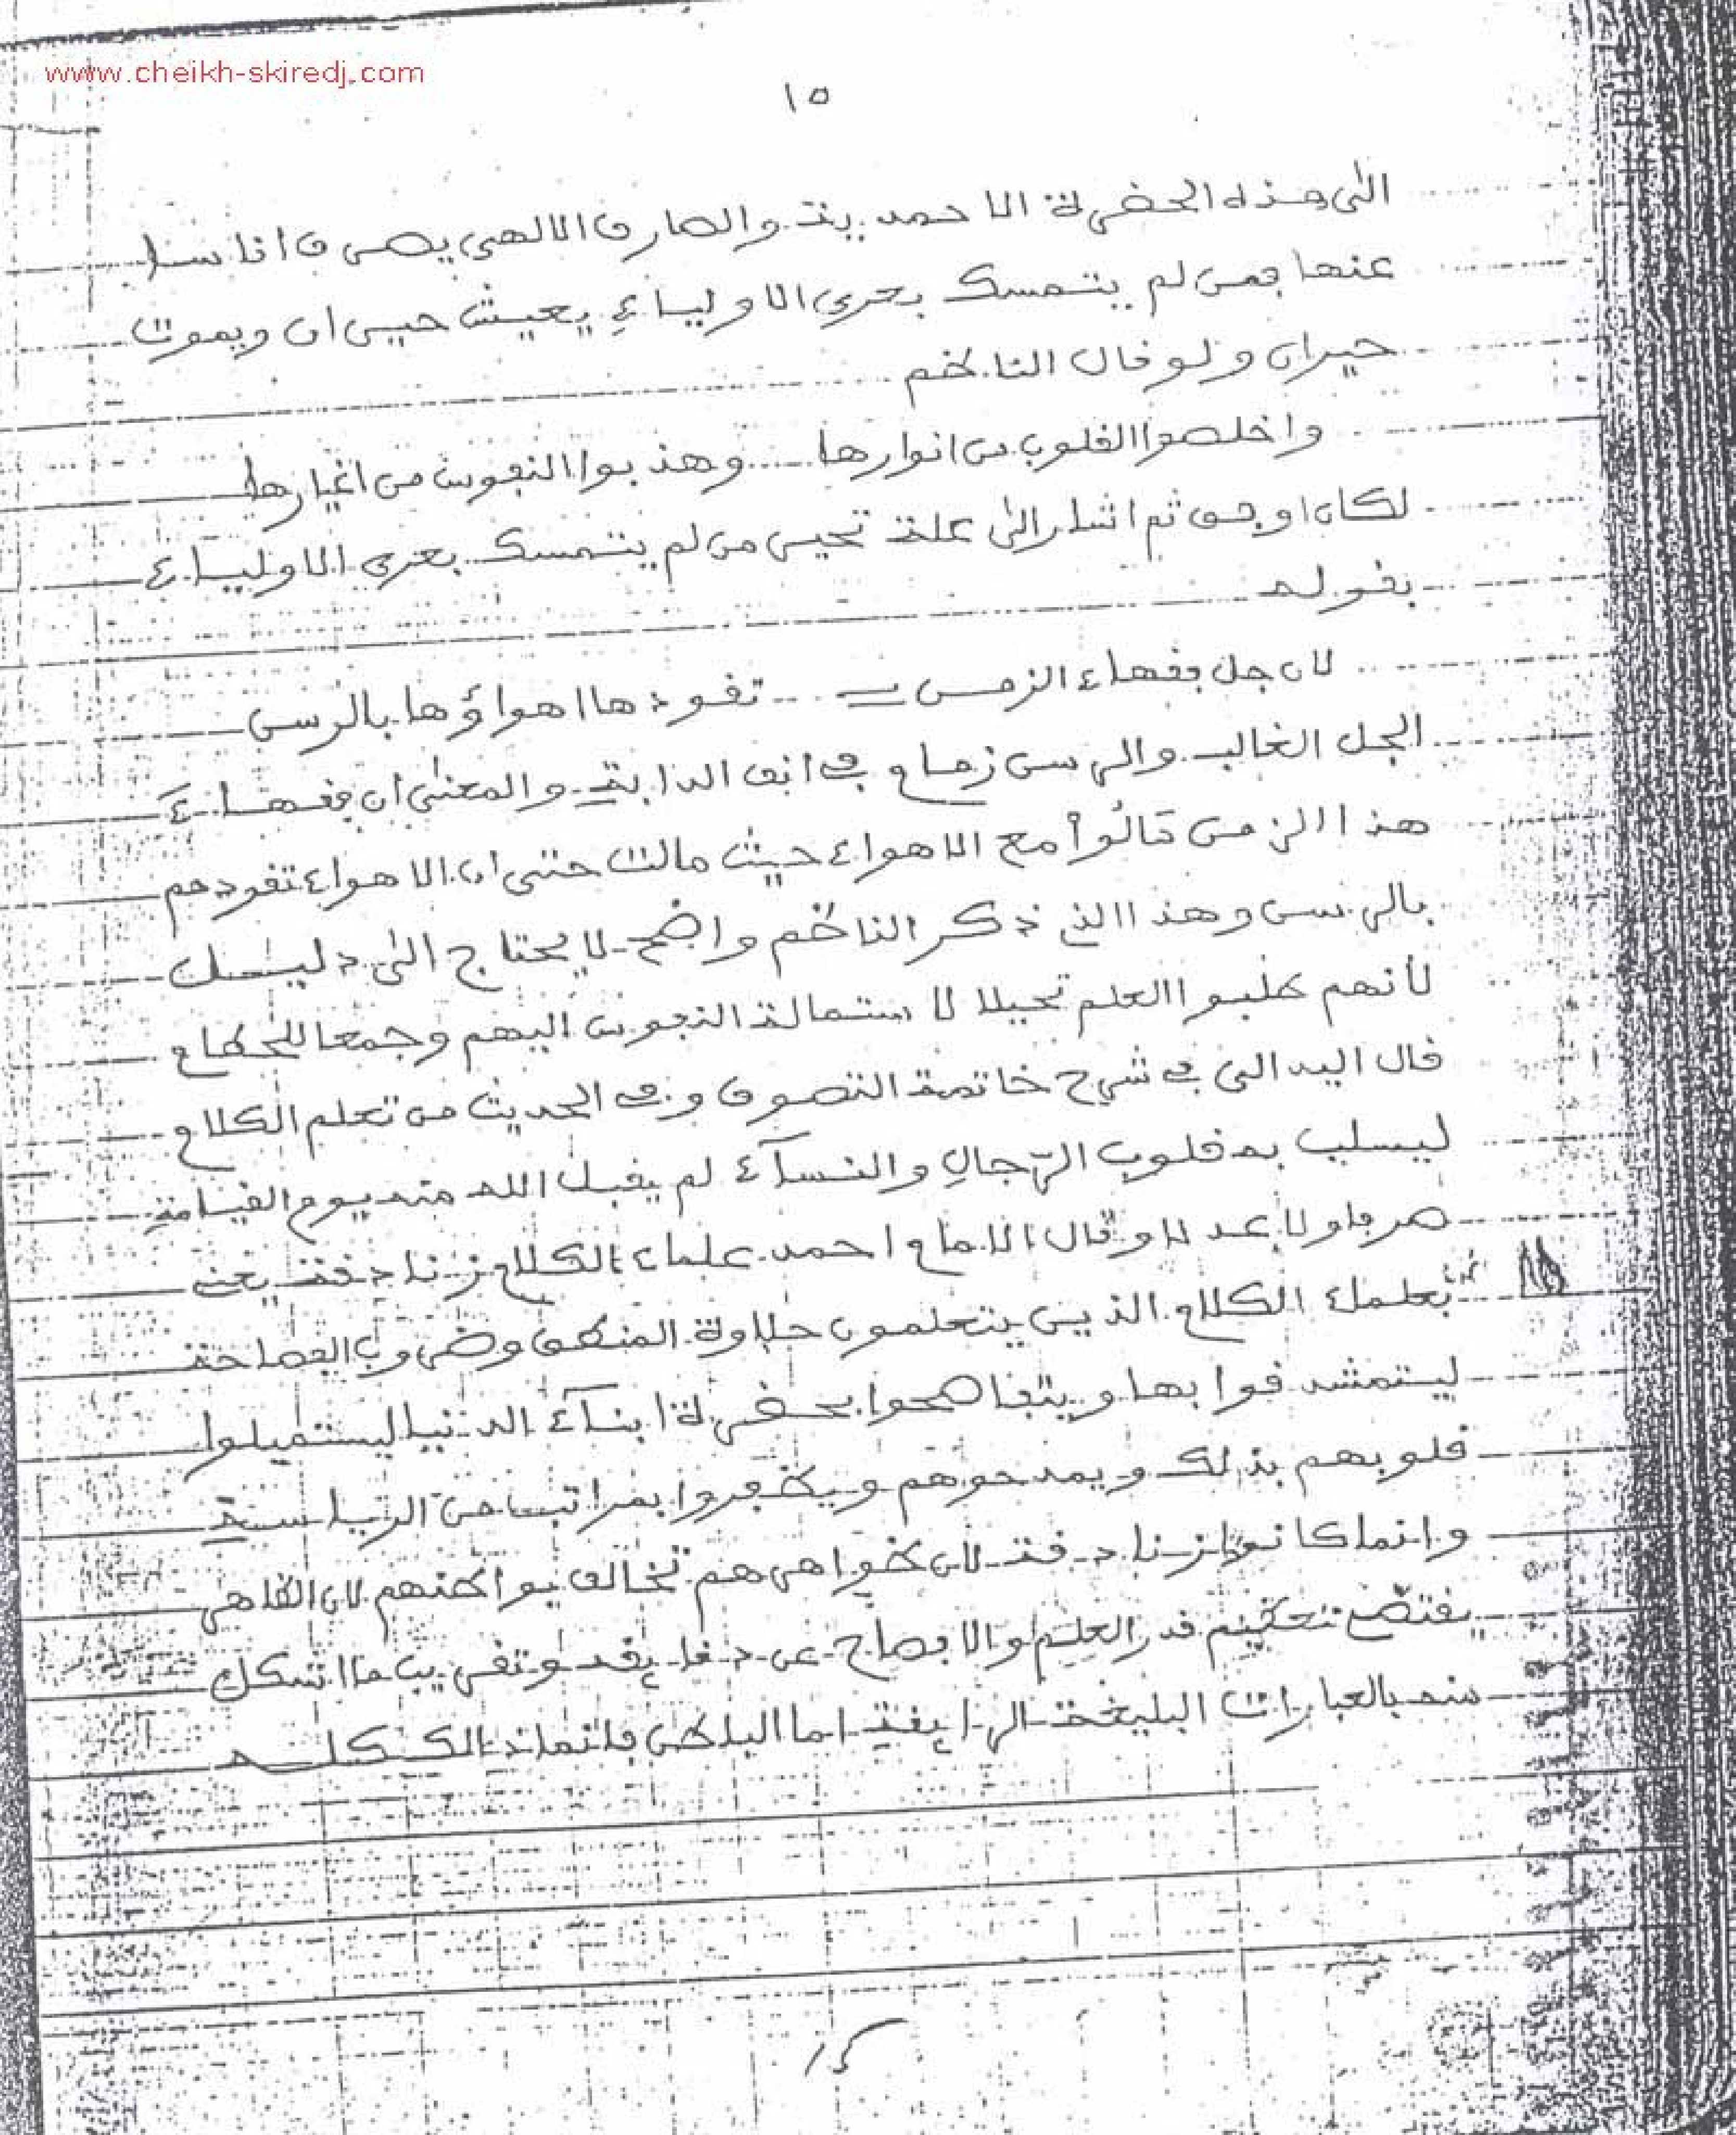 www.cheikh-skiredj.com
١٥
الى هذه الحضرة الاحمدية والصارف الالهي يصرف اناسا
عنها فمن لم يتمسك بعرى الاولياء يعيش حيران ويموت
حيران ولو قال الناظم
واخلصوا القلوب من انوارها وهذبوا النفوس من اغيارها
لكان اوجه ثم اشار الى علة تحير من لم يتمسك بعرى الاولياء
بقوله
لان جل فقهاء الزمن تقودها اهواؤها بالرسن
الجل الغالب والرسن زمام في انف الدابة والمعنى أن فقهاء
هذا الزمن مَالُوا مع الاهواء حيث مالت حتى ان الاهواء تقودهم
بالرسن وهذا الذي ذكر الناظم واضح لا يحتاج الى دليل
لأنهم طلبوا العلم تحيلا لاستمالة النفوس اليهم وجمعا للحطام
قال اليدالي في شرح خاتمة التصوف وفي الحديث من تعلم الكلام
ليسلب به قلوب الرّجال والنسآء لم يقبل الله منه يوم القيامة
صرفا ولا عدلا وقال الامام احمد علماء الكلام زنادقة يعني
بعلماء الكلام الذين يتعلمون حلاوة المنطق وضروب الفصاحة
ليتمشدقوا بها ويتفاصحوا بحضرة ابنآء الدنيا ليستميلوا
قلوبهم بذلك ويمدحوهم ويظفروا بمراتب من الرياسة
وانما كانوا زنادقة لان ظواهرهم تخالف بواطنهم لان الظاهر
يقتضي تعظيم قدر العلم والافصاح عن دقايقه وتقريب ما اشكل
منه بالعبارات البليغة الرايقة اما الباطن فانما ذالك كله